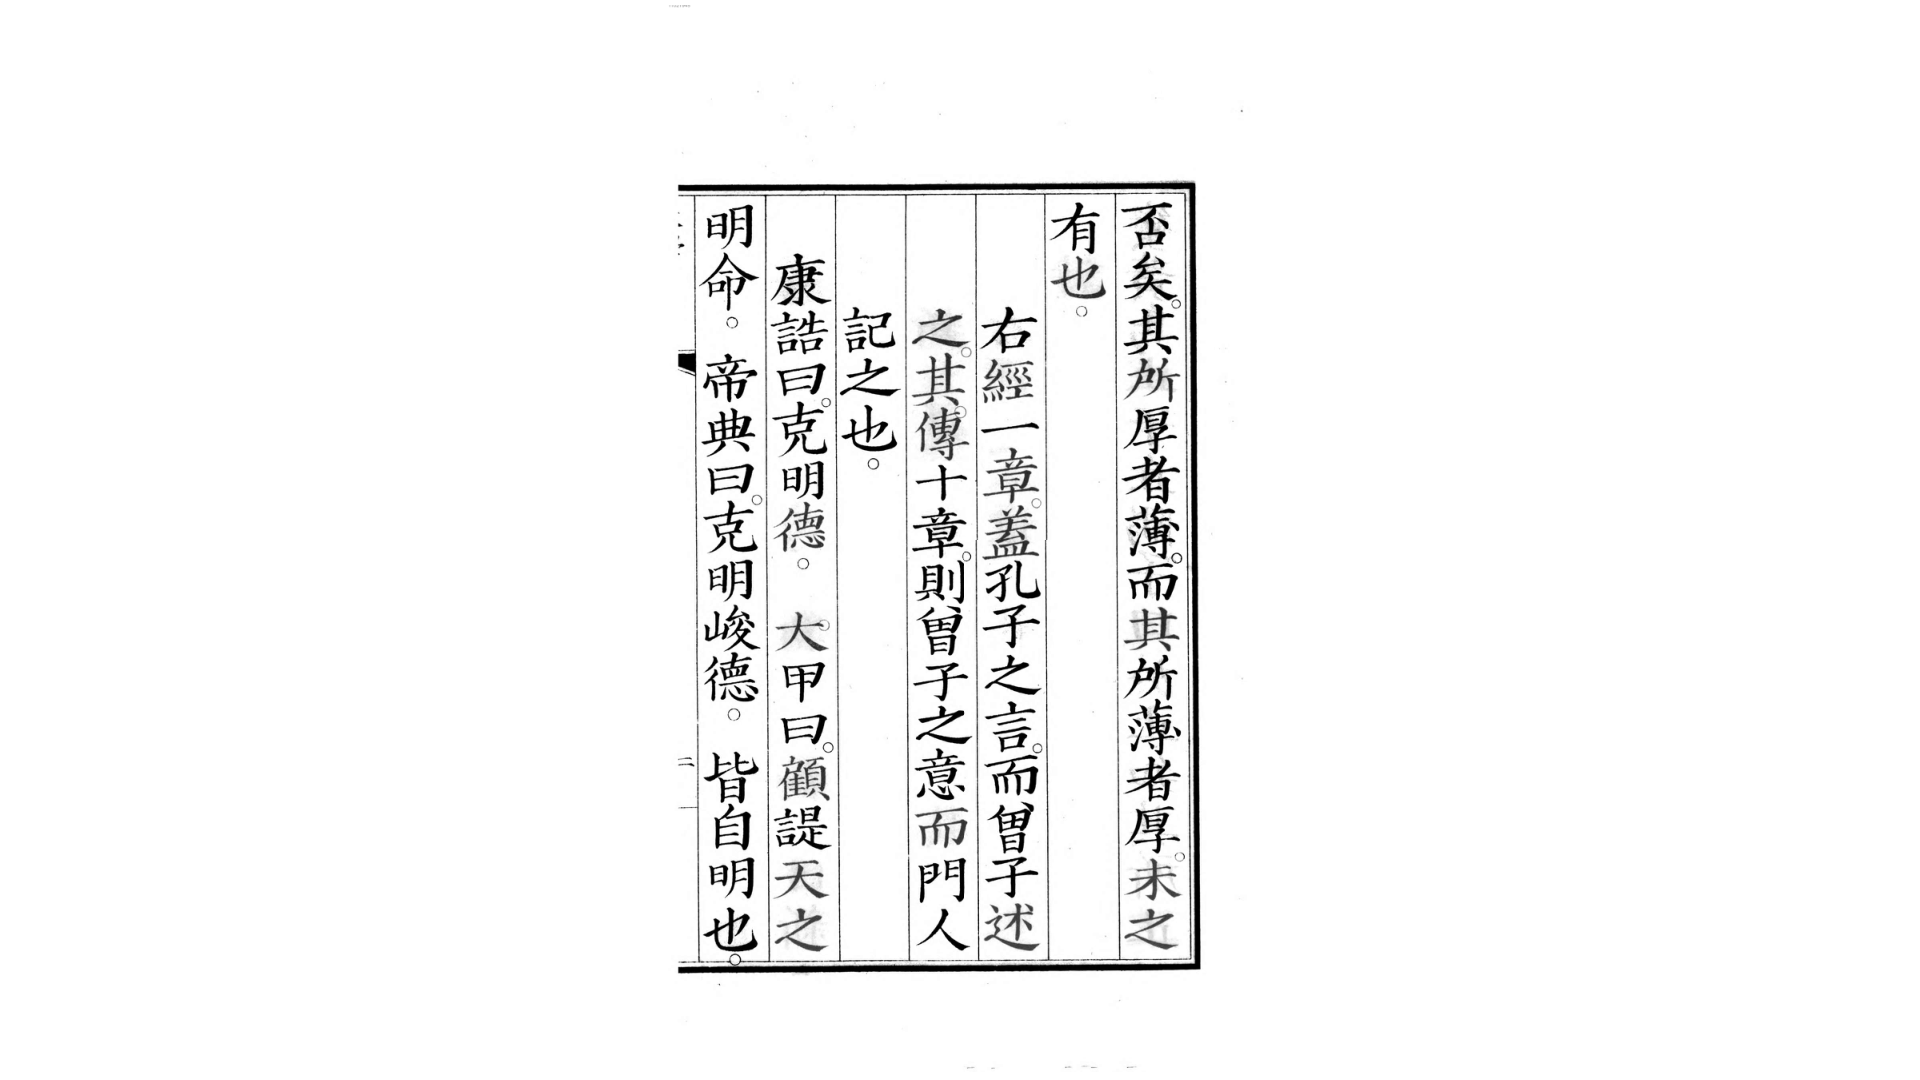 否矣。其所厚者薄。而其所薄者厚。未之
有也。
右經一章。蓋孔子之言。而曾子述
之。其。傳十章。則曾子之意而門人
記之也。
康誥曰。克明德。大。甲曰。顧諟天之
明命。帝典曰。克明峻德。皆自明也。
二